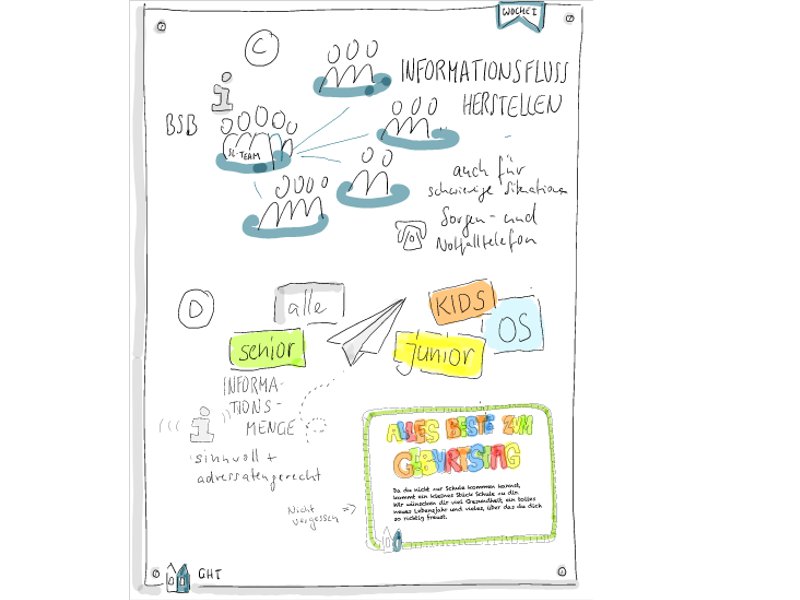 WOCHE I
C
INFORMATIONSFLUSS
HERSTELLEN
i
BSB
SL-TEAM
auch für
schwierige Situationen
Sorgen- und
Notfalltelefon
D
alle
KIDS
OS
senior
junior
INFORMA-
TIONS-
MENGE
i
sinnvoll +
adressatengerecht
ALLES BESTE ZUM
GEBURTSTAG
Da du nicht zur Schule kommen kannst,
kommt ein kleines Stück Schule zu dir.
Wir wünschen dir viel Gesundheit, ein tolles
neues Lebensjahr und vieles, über das du dich
so richtig freust.
Nicht
vergessen =>
GHT